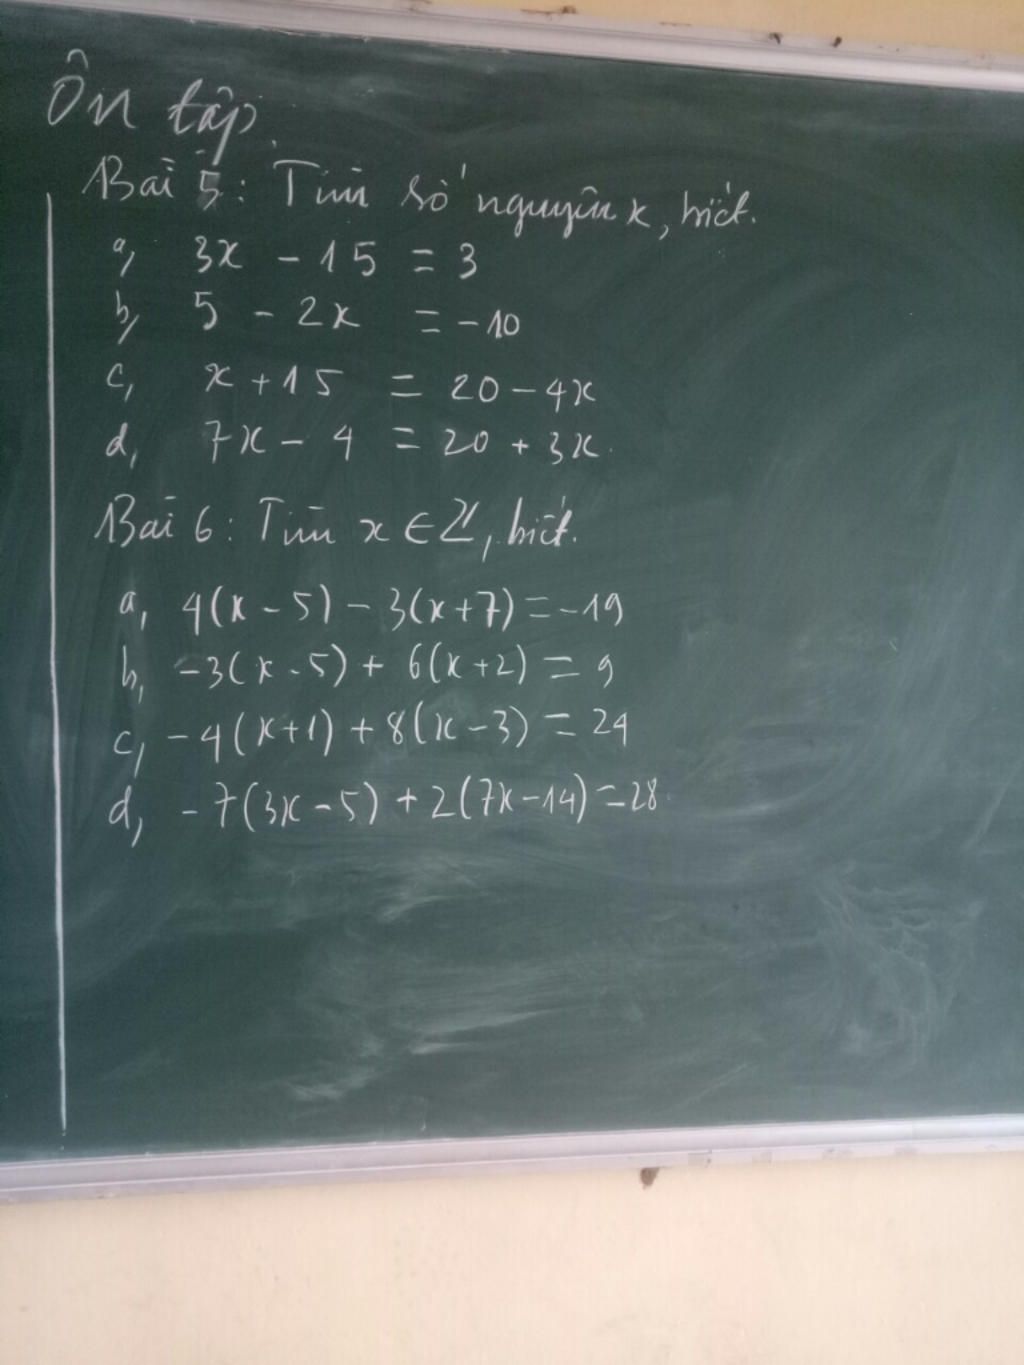 Ôn tập.
Bài 5: Tìm số nguyên x, biết.
a, 3x - 15 = 3
b, 5 - 2x = -10
c, x + 15 = 20 - 4x
d, 7x - 4 = 20 + 3x.
Bài 6: Tìm x ∈ Z, biết.
a, 4(x - 5) - 3(x + 7) = -19
b, -3(x - 5) + 6(x + 2) = 9
c, -4(x + 1) + 8(x - 3) = 24
d, -7(3x - 5) + 2(7x - 14) = 28.